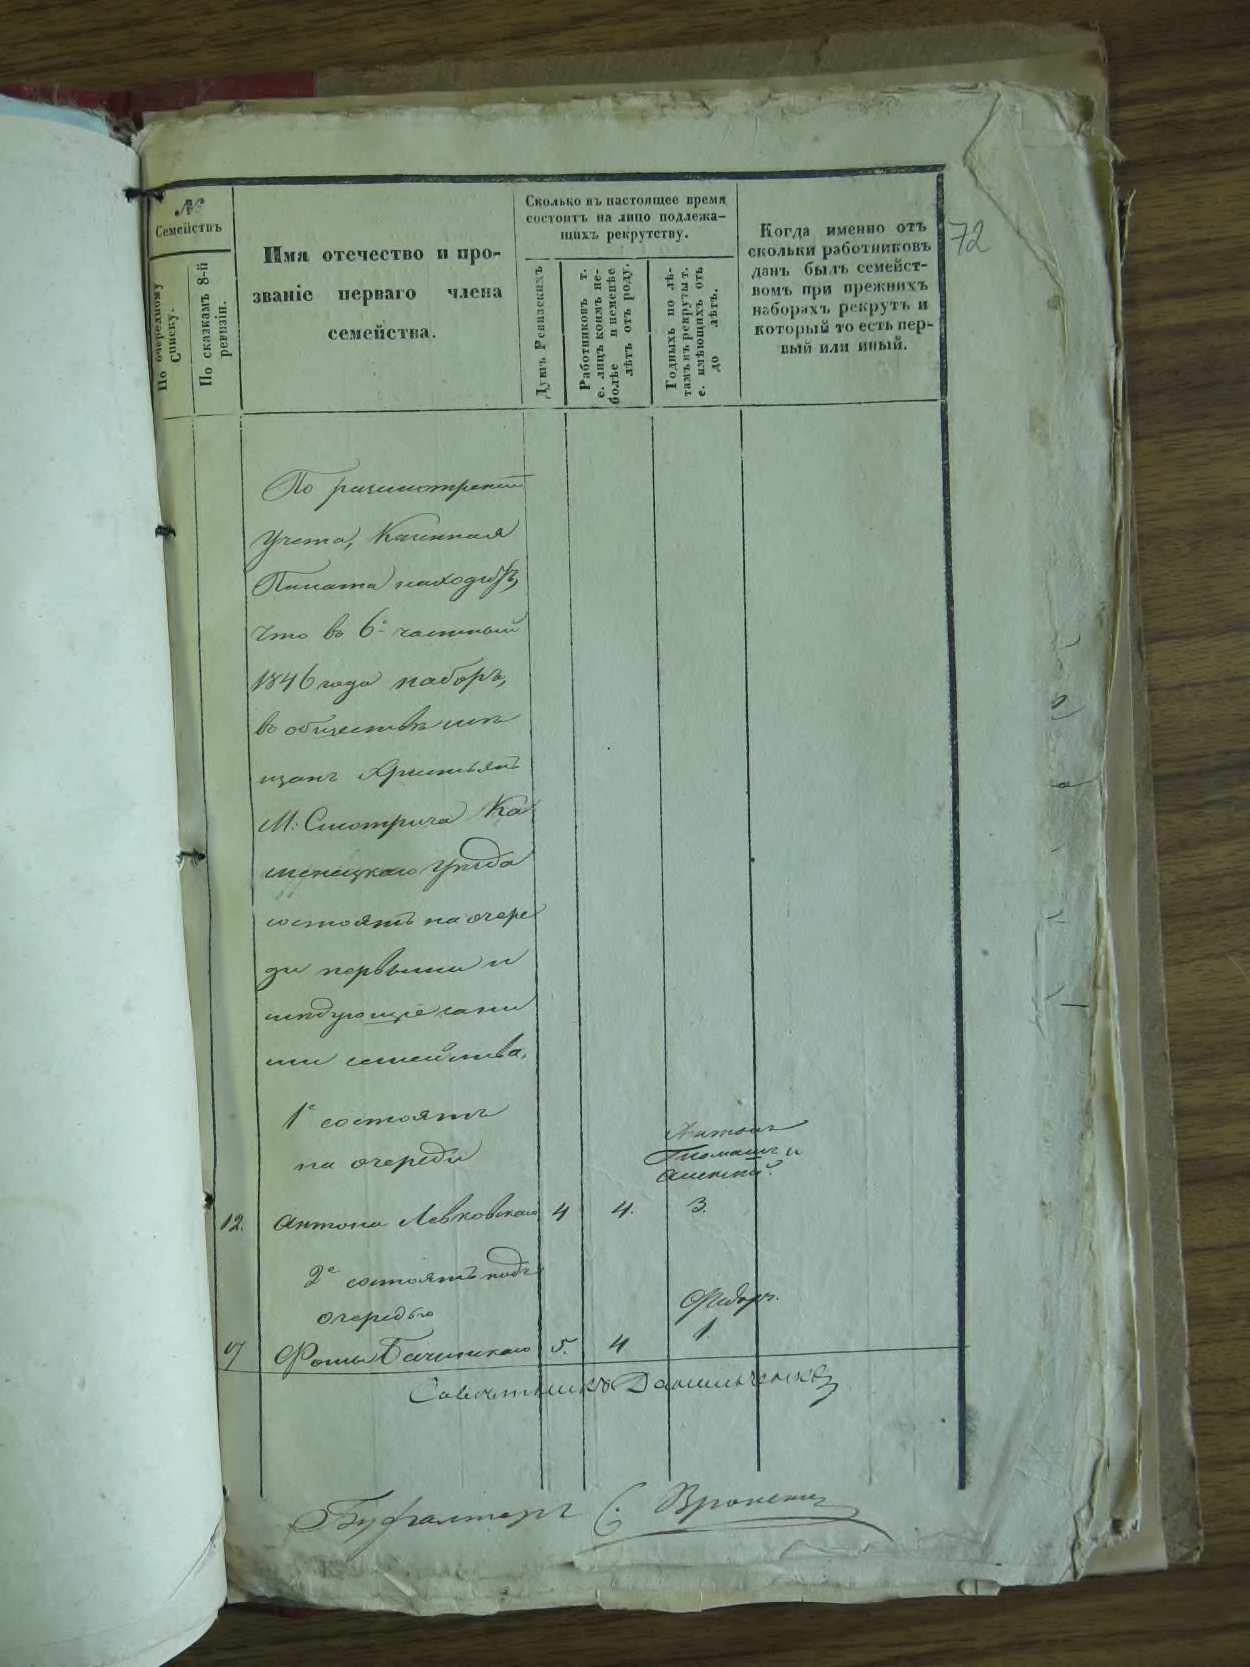 №
Семействъ
По очередному
Списку.
По сказкамъ 8-й
ревизіи.
Имя отечество и про-
званіе перваго члена
семейства.
Сколько въ настоящее время
состоитъ на лицо подлежа-
щихъ рекрутству.
Душъ Ревизскихъ
Работниковъ т.
е. лицъ коимъ не-
болѣе и неменѣе
лѣтъ отъ роду.
Годныхъ по лѣ-
тамъ въ рекруты т.
е. имѣющихъ отъ
до лѣтъ.
Когда именно отъ
скольки работниковъ
данъ былъ семейст-
вомъ при прежнихъ
наборахъ рекрутъ и
который то есть пер-
вый или иный.
72
По разсмотреніи
учета, Казенная
Палата находитъ,
что въ 6й частный
1846 года наборъ,
въ обществѣ мѣ
щанъ христіянъ
М: Смотрича Ка
менецкаго уѣзда
состоятъ на очере
ди первыми и
слѣдующіе за ни
ми семейства.
1е состоятъ
на очереди
Антонъ
Томашъ и
Алексѣй.
12. Антона Левковскаго 4 4. 3.
2е состоятъ подъ
очередью
Федоръ.
17 Фомы Бачинскаго 5. 4 1
Совѣтникъ Данильченко
Бухгалтеръ С.